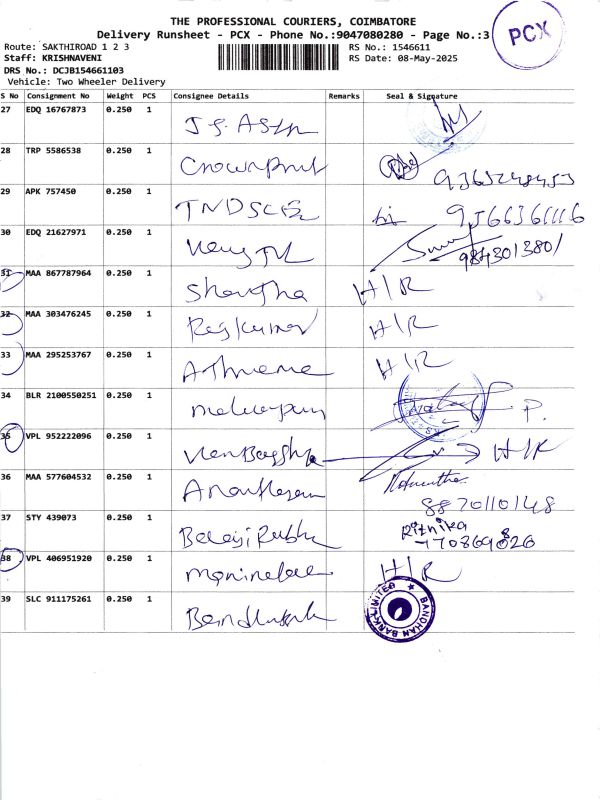 THE PROFESSIONAL COURIERS, COIMBATORE
Delivery Runsheet - PCX - Phone No.:9047080280 - Page No.:3
PCX
Route: SAKTHIROAD 1 2 3
RS No.: 1546611
Staff: KRISHNAVENI
RS Date: 08-May-2025
DRS No.: DCJB154661103
Vehicle: Two Wheeler Delivery
S No Consignment No Weight PCS Consignee Details Remarks Seal & Signature
27 EDQ 16767873 0.250 1
28 TRP 5586538 0.250 1 Crownprint 9365248453
29 APK 757450 0.250 1 TNDSCB 9566361116
30 EDQ 21627971 0.250 1 9843013801
31 MAA 867787964 0.250 1 Shangtha H/R
32 MAA 303476245 0.250 1 Rajkumar H/R
33 MAA 295253767 0.250 1 H/R
34 BLR 2100550251 0.250 1 P.
35 VPL 952222096 0.250 1 H/R
36 MAA 577604532 0.250 1 8870110148
37 STY 439073 0.250 1 Rithika
38 VPL 406951920 0.250 1 H/R
39 SLC 911175261 0.250 1 BANDHAN BANK LIMITED